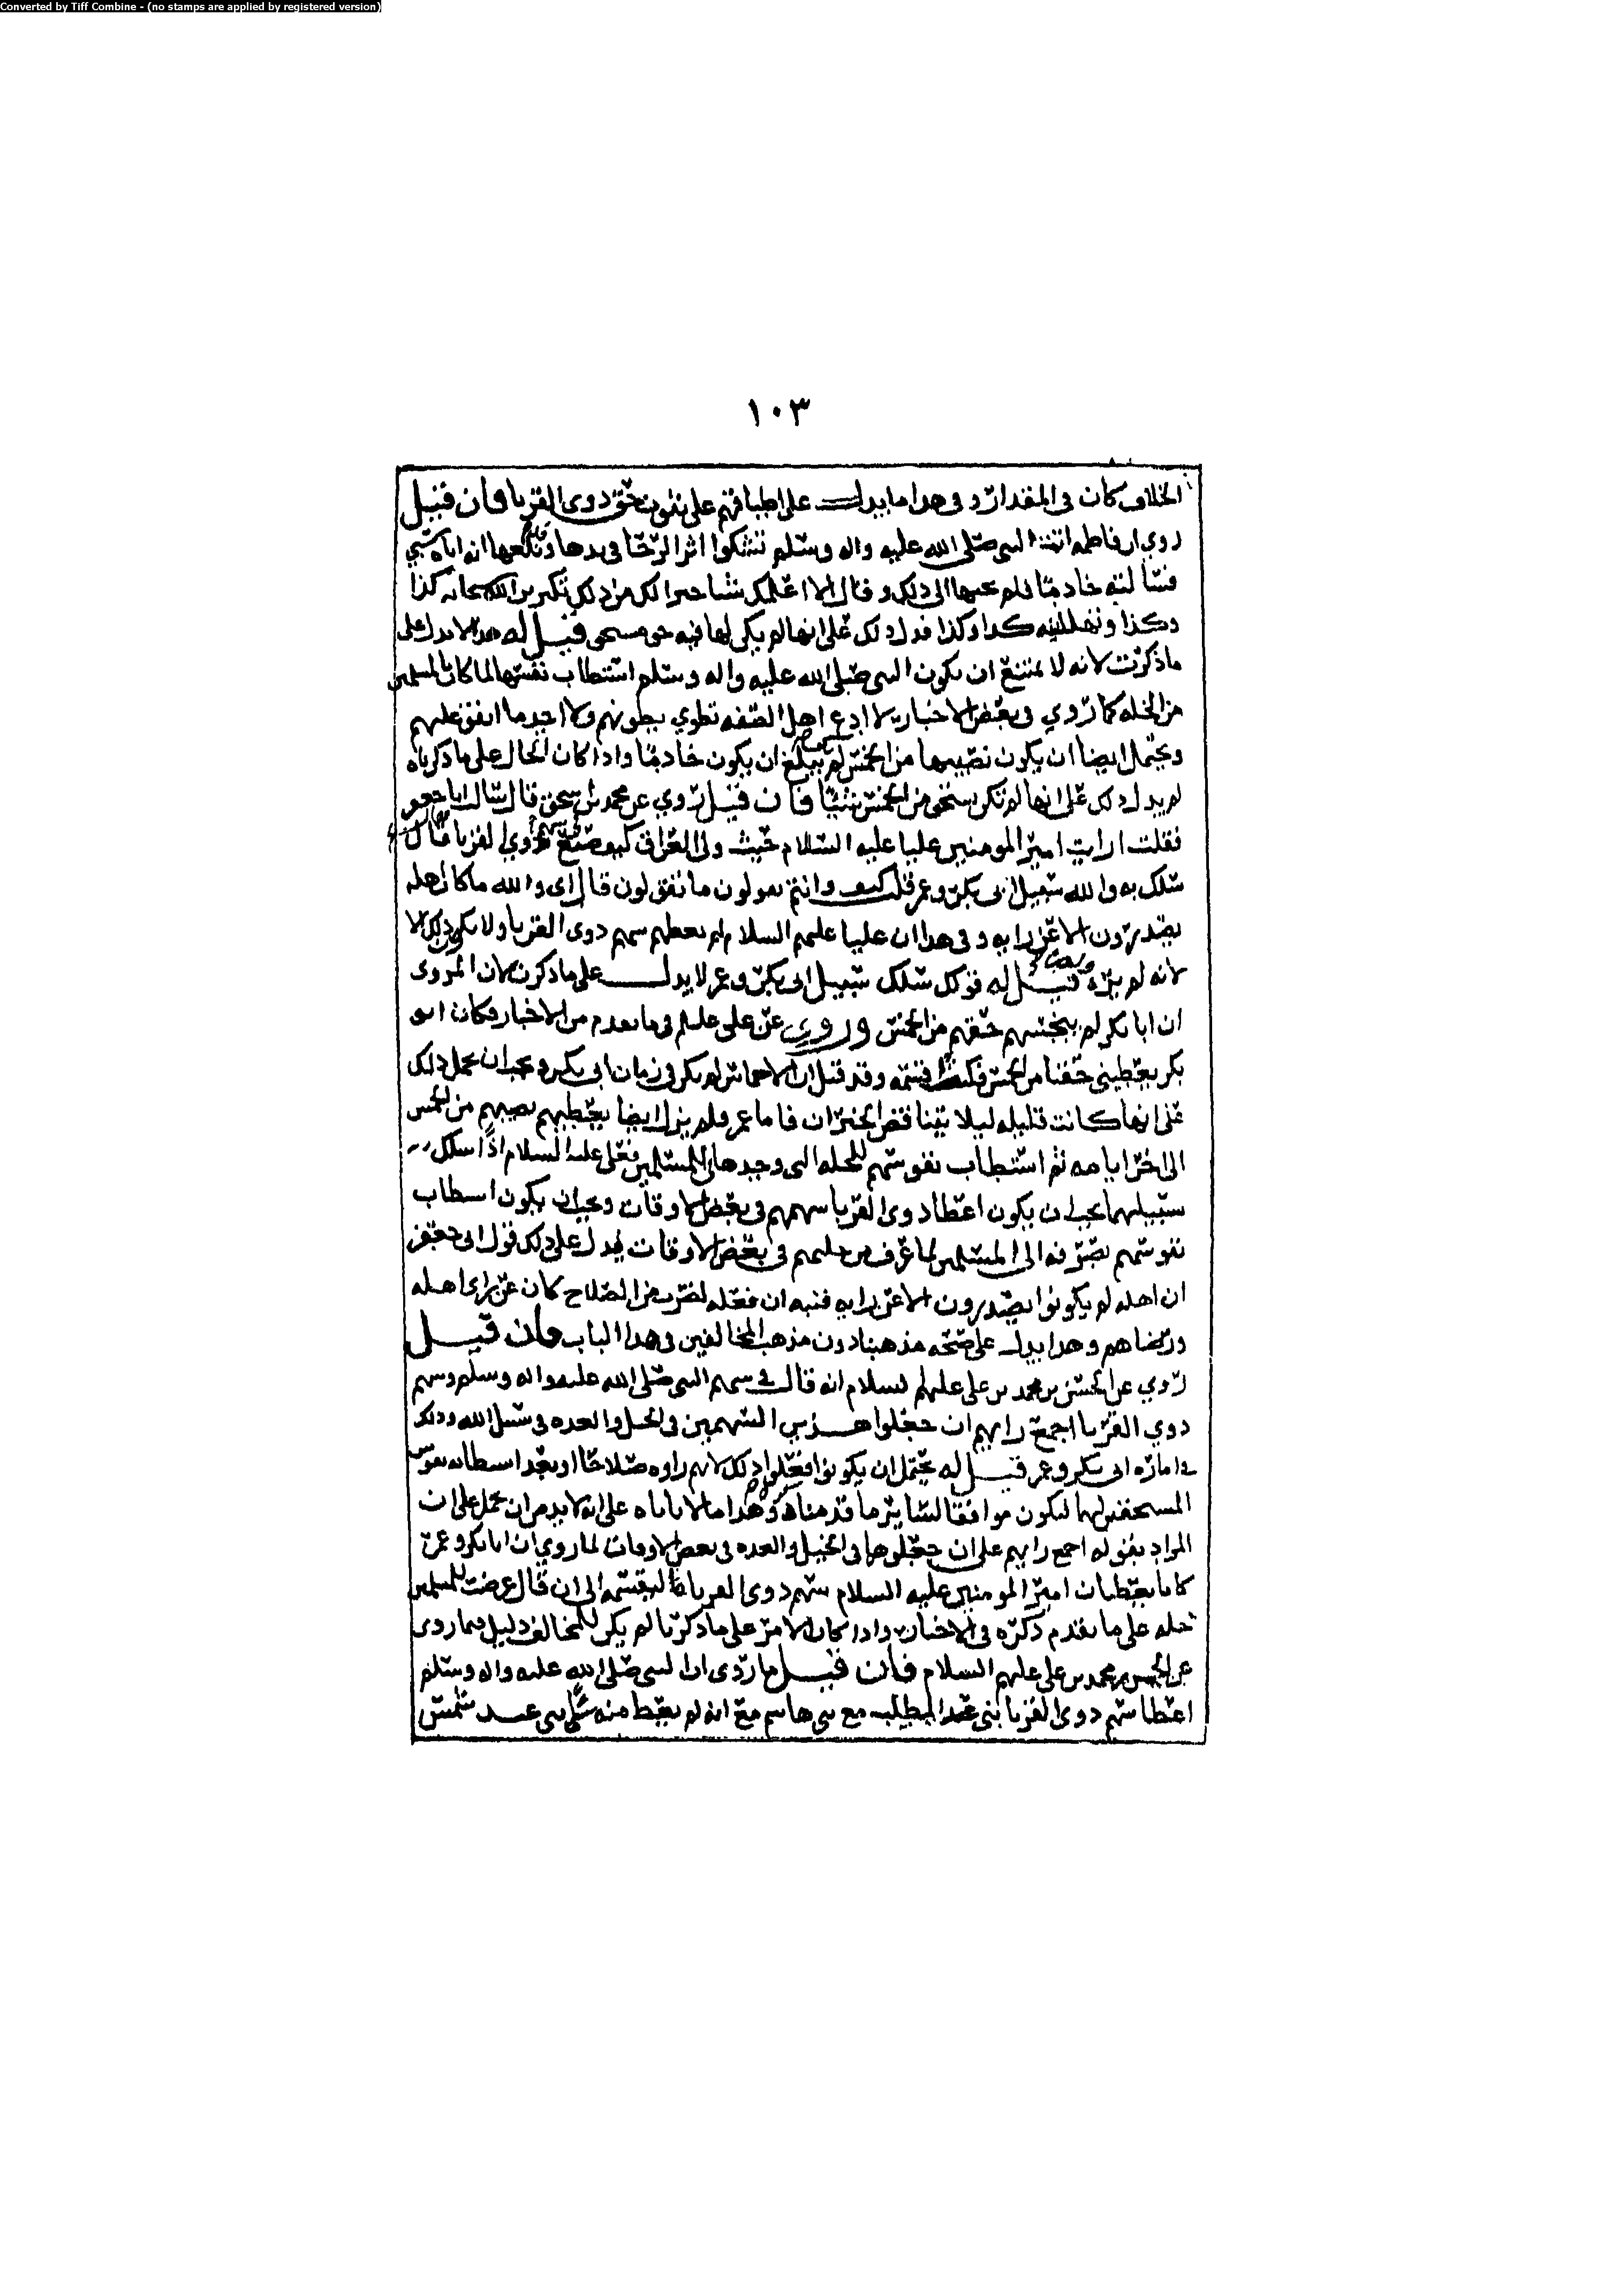 Converted by Tiff Combine - (no stamps are applied by registered version)
١٠٣
الخلاف كان في المقدار وفي هذا ما يدل على اطباقهم على ثبوت حق ذوي القربا فان قيل
روي ان فاطمه اتت النبي صلى الله عليه واله وسلم تشكوا اثر الرحا في يدها وبلغها انه اتاه سبي
فسالته خادما فلم يجبها الى ذلك وقال الا اعلمك شيا خيرا لك من ذلك تكبرين الله سبحانه كذا
وكذا وتهللينه كذا وكذا فدل ذلك على انها لم يكن لها فيه حق مستحق قيل له هذا لا يدل على
ما ذكرت لانه لا يمتنع ان يكون النبي صلى الله عليه واله وسلم استطاب نفسها لما كان بالمسلمين
من الخله كما روي في بعض الاخبار لا ادع اهل الصفه تطوي بطونهم ولا اجد ما انفق عليهم
ويحتمل ايضا ان يكون نصيبها من الخمس لم يبلغ ان يكون خادما واذا كان الحال على ما ذكرناه
لم يدل ذلك على انها لم تكن تستحق من الخمس شيئا فان قيل روي عن محمد بن اسحق قال سالت ابا جعفر
فقلت ارايت امير المومنين عليا عليه السلام حيث ولي العراق كيف صنع في سهم ذوي القربا قال
سلك به والله سبيل ابي بكر وعمر قلت كيف وانتم تقولون ما تقولون قال اي والله ما كان اهله
يصدرون الا عن رايه وفي هذا ان عليا عليهم السلام لم يعطهم سهم ذوي القربا ولا يكون ذلك الا
لانه لم يره قيل له قوله سلك سبيل ابي بكر وعمر لا يدل على ما ذكرت لان المروي
ان ابا بكر لم يبخسهم حقهم من الخمس وروي عن علي عليلم في ما تقدم من الاخبار فكان ابو
بكر يعطيني حقنا من الخمس فكنت اقسمه وقد قيل ان الاخماس لم يكن في زمان ابي بكر ويجب ان يحمل ذلك
على انها كانت قليله ليلا يتناقض الخبران فاما عمر فلم يزل ايضا يعطيهم نصيبهم من الخمس
الى اخر ايامه ثم استطاب نفوسهم للخله التي وجدها للمسلمين فعلي عليه السلام اذا سلك
سبيلهما يجب ان يكون اعطا ذوي القربا سهمهم في بعض الاوقات ويجب ان يكون استطاب
نفوسهم بصرفه الى المسلمين لما عرف من حالهم في بعض الاوقات يدل على ذلك قول ابي جعفر
ان اهله لم يكونوا يصدرون الا عن رايه فنبه ان فعله لضرب من الصلاح كان عن راى اهله
ورضاهم وهذا يدل على صحه مذهبنا دون مذهب المخالفين وهذا الباب فان قيل
روي عن الحسن بن محمد بن علي عليهم السلام انه قال في سهم النبي صلى الله عليه واله وسلم وسهم
ذوي القربا اجمع رايهم ان جعلوا هذين السهمين في الخيل والعده في سبيل الله وذلك
في اماره ابي بكر وعمر قيل له يحتمل ان يكونوا فعلوا ذلك لانهم راوه صلاحا او بعد استطابه نفوس
المستحقين لهما ليكون موافقا لسائر ما قدمناه وهذا ما لا اباه على انه لا بد من ان يحمل على ان
المراد بقوله اجمع رايهم على ان جعلوها في الخيل والعده في بعض الاوقات لما روي ان ابا بكر وعمر
كانا يعطيان امير المومنين عليه السلام سهم ذوي القربا ليقسمه الى ان قال عرضت للمسلمين
خله على ما تقدم ذكره في الاخبار واذا كان الامر على ما ذكرنا لم يكن للمخالف دليل فيما روي
عن الحسن بن محمد بن علي عليهم السلام فان قيل ما روي ان النبي صلى الله عليه واله وسلم
اعطا سهم ذوي القربا بني عبد المطلب مع بني هاشم مع انه لم يعط منه بني عبد شمس